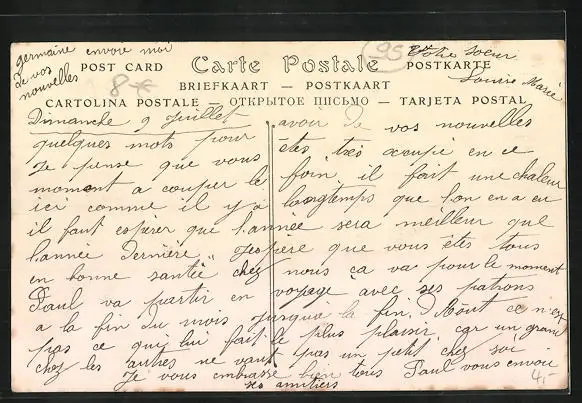 germaine envoie moi
de vos
nouvelles
8-€
95
Votre Soeur
Louise Marie
POST CARD Carte Postale POSTKARTE
BRIEFKAART — POSTKAART
CARTOLINA POSTALE — ОТКРЫТОЕ ПИСЬМО — TARJETA POSTAL
Dimanche 9 Juillet
quelques mots pour avoir de vos nouvelles
Je pense que vous etes très occupé en ce
moment a couper le foin, il fait une chaleur
ici comme il y a longtemps que l'on en a eu
il faut espérer que l'année sera meilleur que
l'année dernière, J'espère que vous êtes tous
en bonne santée chez nous ça va pour le moment
Paul va partir en voyage avec ses patrons
a la fin du mois jusqu'a la fin d'Août ce n'est
pas ce qui lui fait le plus plaisir, car un grand
chez les autres ne vaut pas un petit chez soi
Je vous embrasse bien tous Paul vous envoie
ses amitiers
4,-